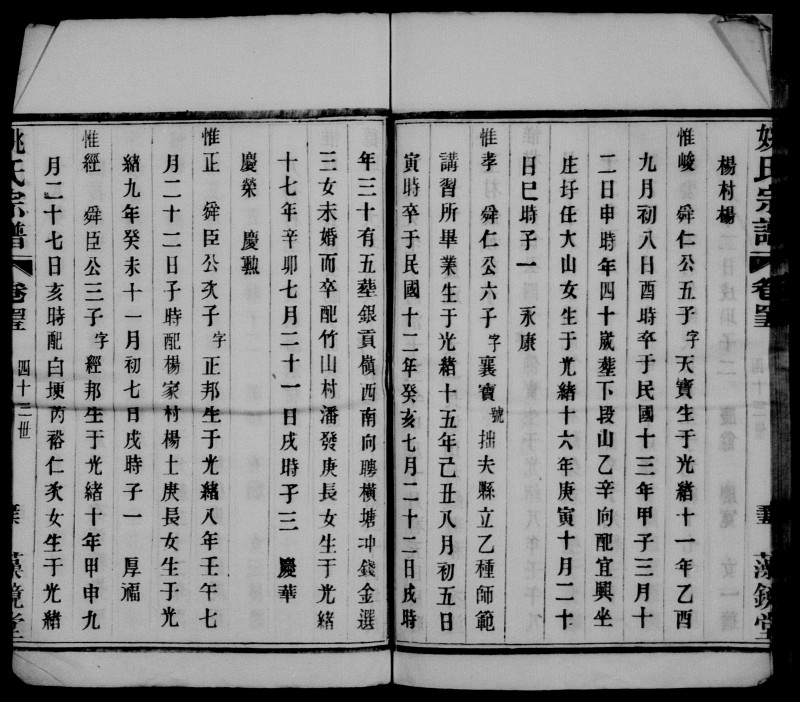 楊村楊
惟峻 舜仁公五子字天寶生于光緒十一年乙酉
九月初八日酉時卒于民國十三年甲子三月十
二日申時年四十歲葬下段山乙辛向配宜興坐
庄圩任大山女生于光緒十六年庚寅十月二十
日巳時子一 永康
惟孝 舜仁公六子字襄寶號拙夫縣立乙種師範
講習所畢業生于光緒十五年己丑八月初五日
寅時卒于民國十二年癸亥七月二十二日戌時
年三十有五葬銀貢嶺西南向聘橫塘冲錢金選
三女未婚而卒配竹山村潘發庚長女生于光緒
十七年辛卯七月二十一日戌時子三 慶華
慶榮 慶勳
惟正 舜臣公次子字正邦生于光緒八年壬午七
月二十二日子時配楊家村楊士庚長女生于光
緒九年癸未十一月初七日戌時子一 厚福
惟經 舜臣公三子字經邦生于光緒十年甲申九
月二十七日亥時配白埂芮裕仁次女生于光緒
姚氏宗譜 卷 四十二世 藻鏡堂